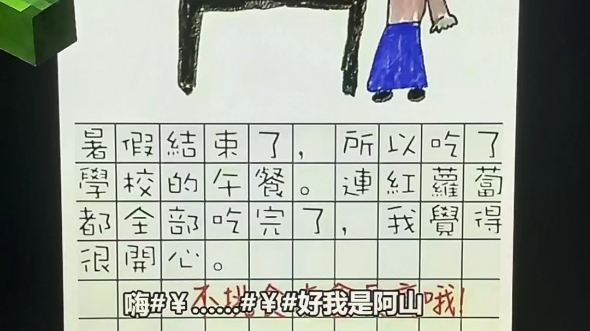 暑假結束了，所以吃了
學校的午餐。連紅蘿蔔
都全部吃完了，我覺得
很開心。
哦!
嗨#￥……#￥#好我是阿山